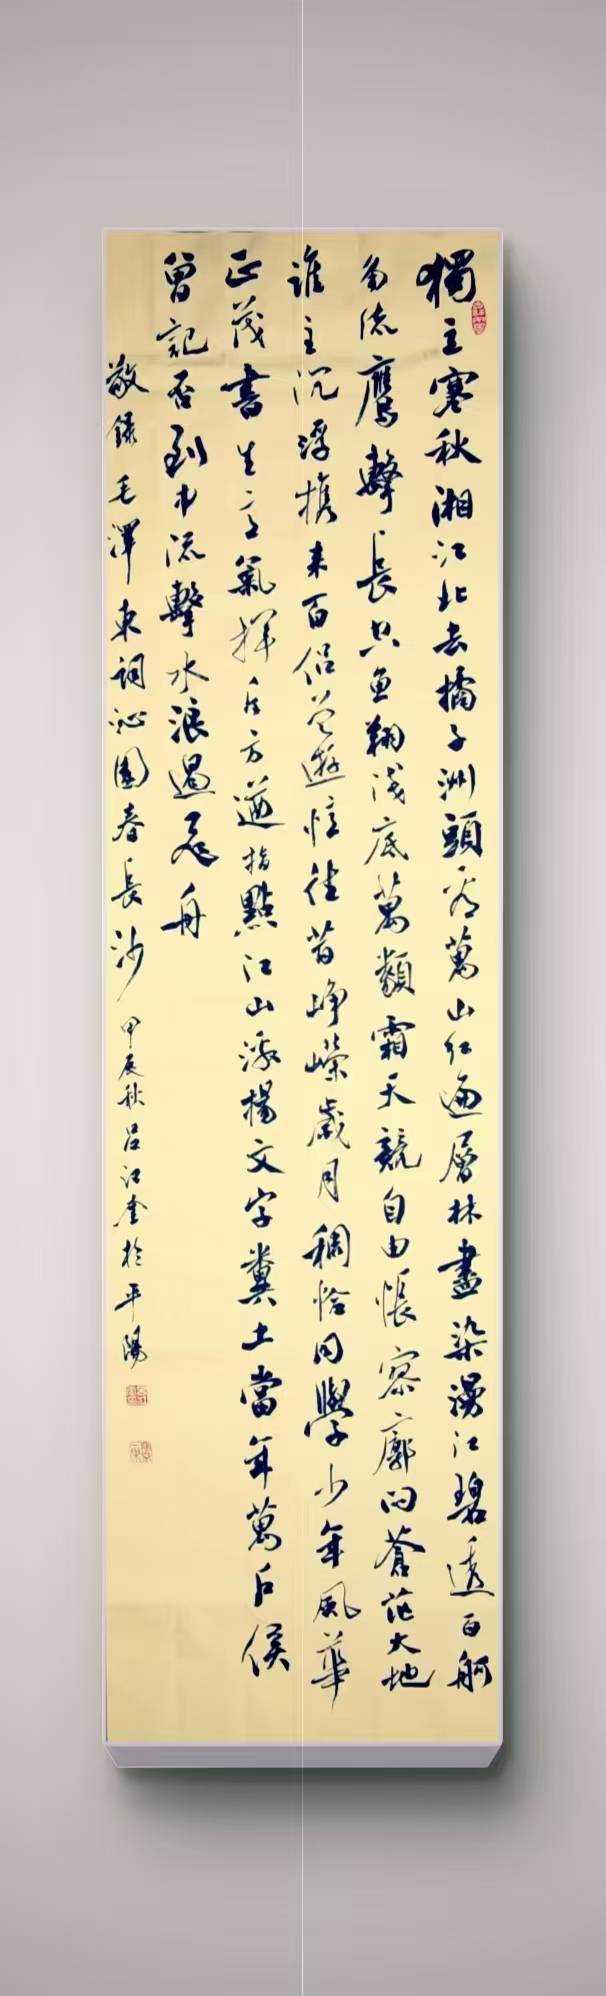 獨立寒秋湘江北去橘子洲頭看萬山紅遍層林盡染漫江碧透百舸
爭流鷹擊長空魚翔淺底萬類霜天競自由悵寥廓問蒼茫大地
誰主沉浮携來百侣曾遊憶往昔崢嶸歲月稠恰同學少年風華
正茂書生意氣揮斥方遒指點江山激揚文字糞土當年萬户侯
曾記否到中流擊水浪遏飛舟
敬錄毛澤東詞沁園春長沙 甲辰秋吕江奎於平陽